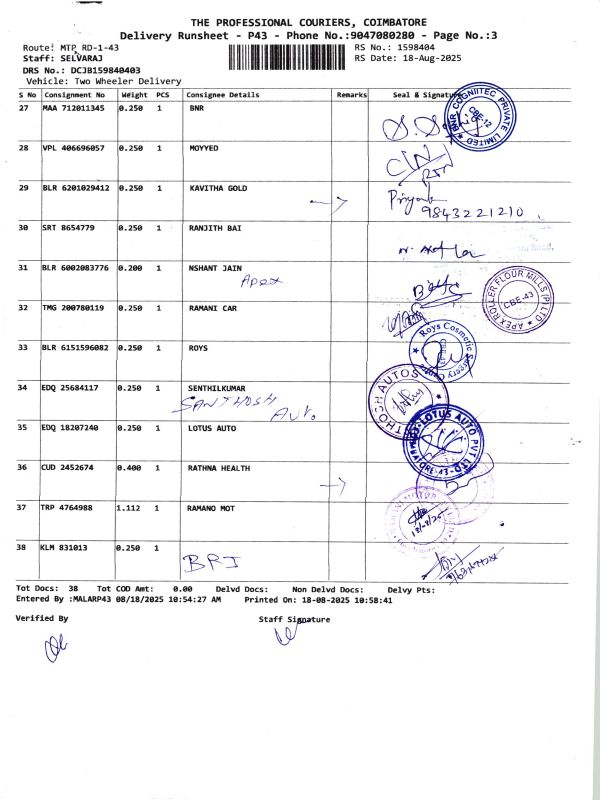 THE PROFESSIONAL COURIERS, COIMBATORE
Delivery Runsheet - P43 - Phone No.:9047080280 - Page No.:3
Route: MTP RD-1-43 RS No.: 1598404
Staff: SELVARAJ RS Date: 18-Aug-2025
DRS No.: DCJB159840403
Vehicle: Two Wheeler Delivery
S No Consignment No Weight PCS Consignee Details Remarks Seal & Signature
27 MAA 712011345 0.250 1 BNR
BNR COGNIITEC PRIVATE LIMITED
CBE-12
28 VPL 406696057 0.250 1 MOYYED
29 BLR 6201029412 0.250 1 KAVITHA GOLD
Priya
9843221210
30 SRT 8654779 0.250 1 RANJITH BAI
31 BLR 6002083776 0.200 1 NSHANT JAIN
Apex
APEX ROLLER FLOUR MILLS (P) LTD
CBE-43
32 TMG 200780119 0.250 1 RAMANI CAR
33 BLR 6151596082 0.250 1 ROYS
Roys Cosmetic Surgery Centre
34 EDQ 25684117 0.250 1 SENTHILKUMAR
SANTHOSH AUTO
THOSH AUTOS
35 EDQ 18207240 0.250 1 LOTUS AUTO
LOTUS AUTO PVT LTD
36 CUD 2452674 0.400 1 RATHNA HEALTH
37 TRP 4764988 1.112 1 RAMANO MOT
18/8/25
38 KLM 831013 0.250 1
BRJ
Tot Docs: 38 Tot COD Amt: 0.00 Delvd Docs: Non Delvd Docs: Delvy Pts:
Entered By :MALARP43 08/18/2025 10:54:27 AM Printed On: 18-08-2025 10:58:41
Verified By Staff Signature